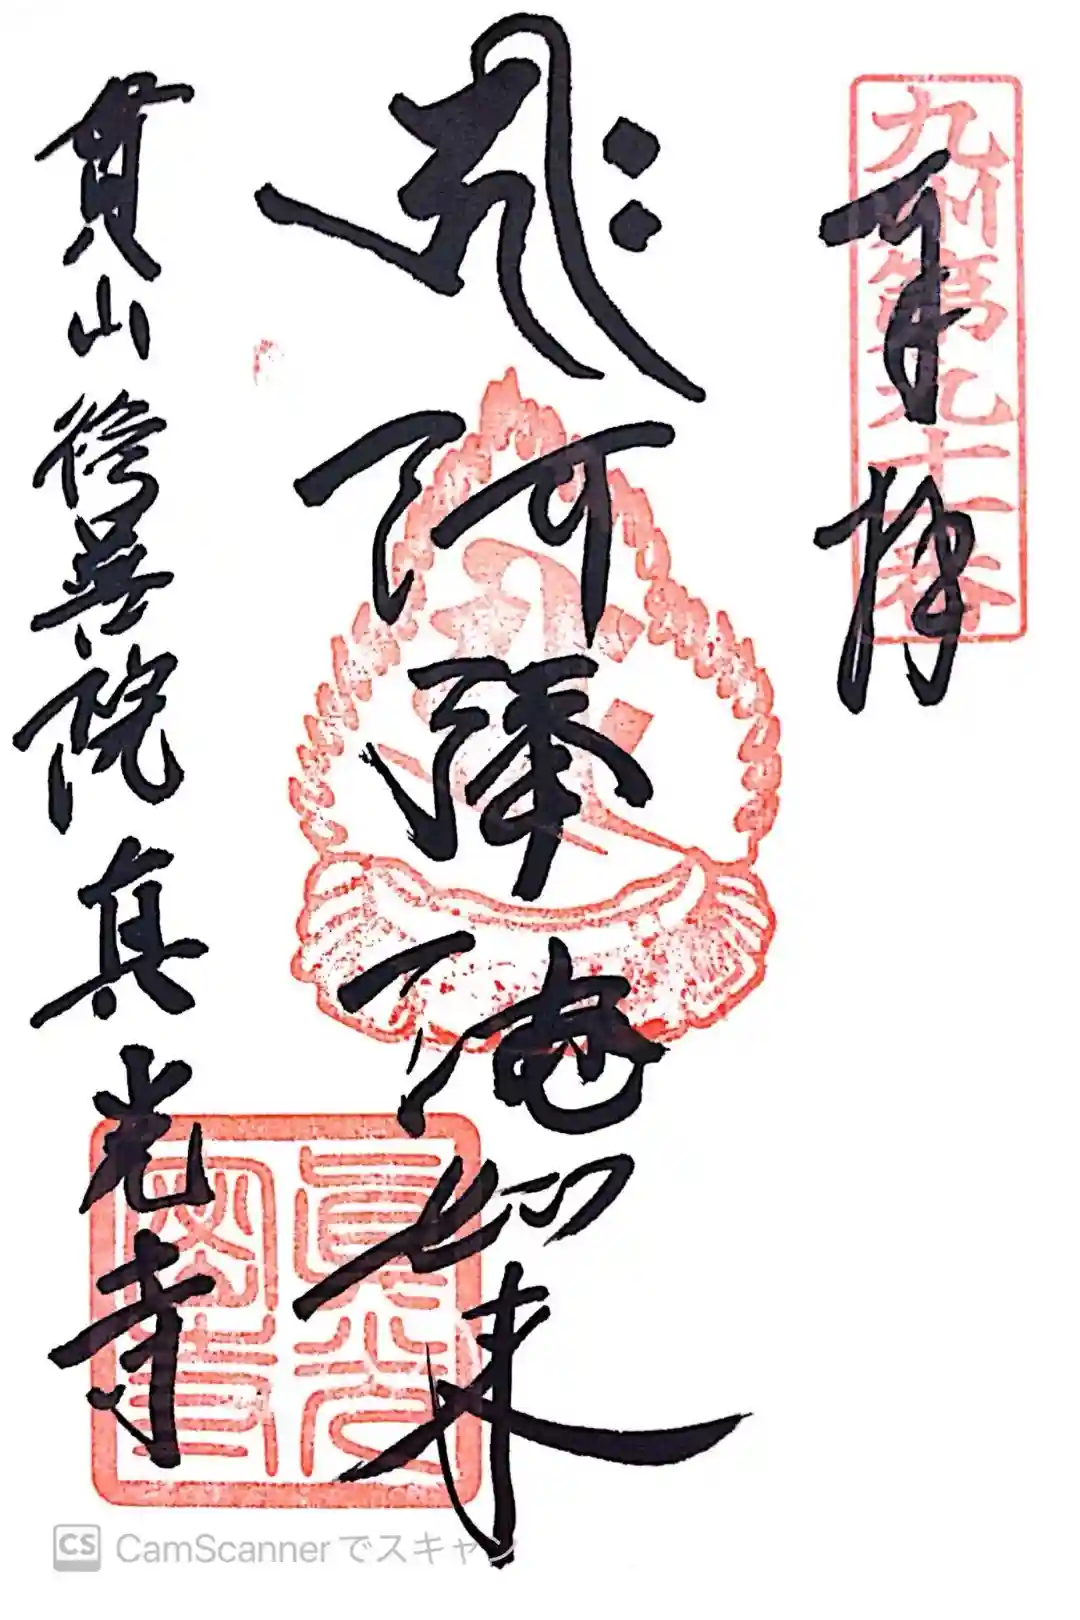 九州第九十一番
奉拝
𑖮𑖿𑖨𑖱𑖾
阿弥陀如来
貫山
善院
真光寺
眞光
CS CamScannerでスキャ